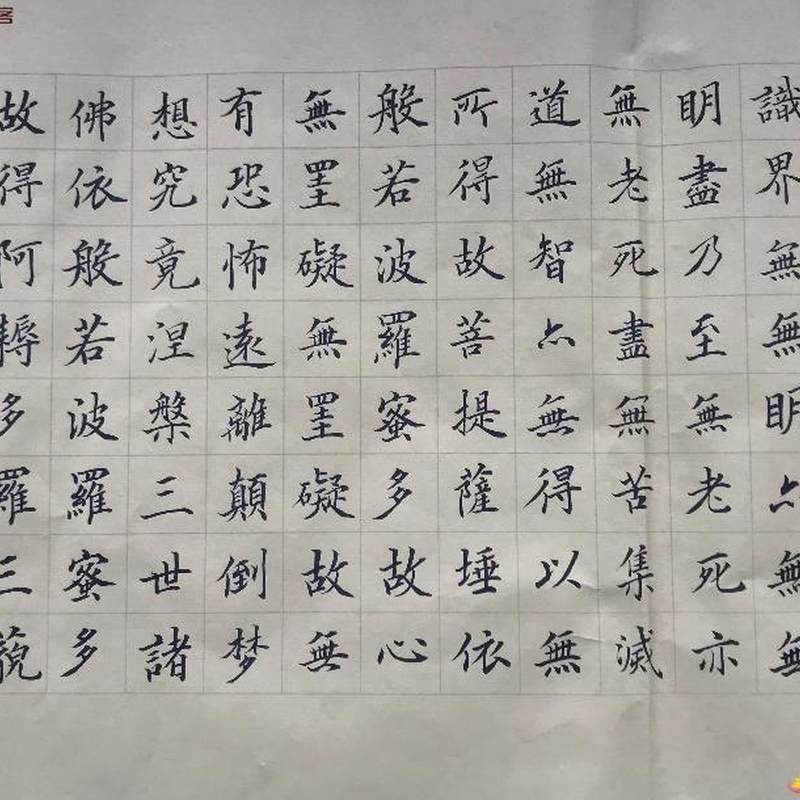 識界無無明亦無無
明盡乃至無老死亦
無老死盡無苦集滅
道無智亦無得以無
所得故菩提薩埵依
般若波羅蜜多故心
無罣礙無罣礙故無
有恐怖遠離顛倒梦
想究竟涅槃三世諸
佛依般若波羅蜜多
故得阿耨多羅三藐
客